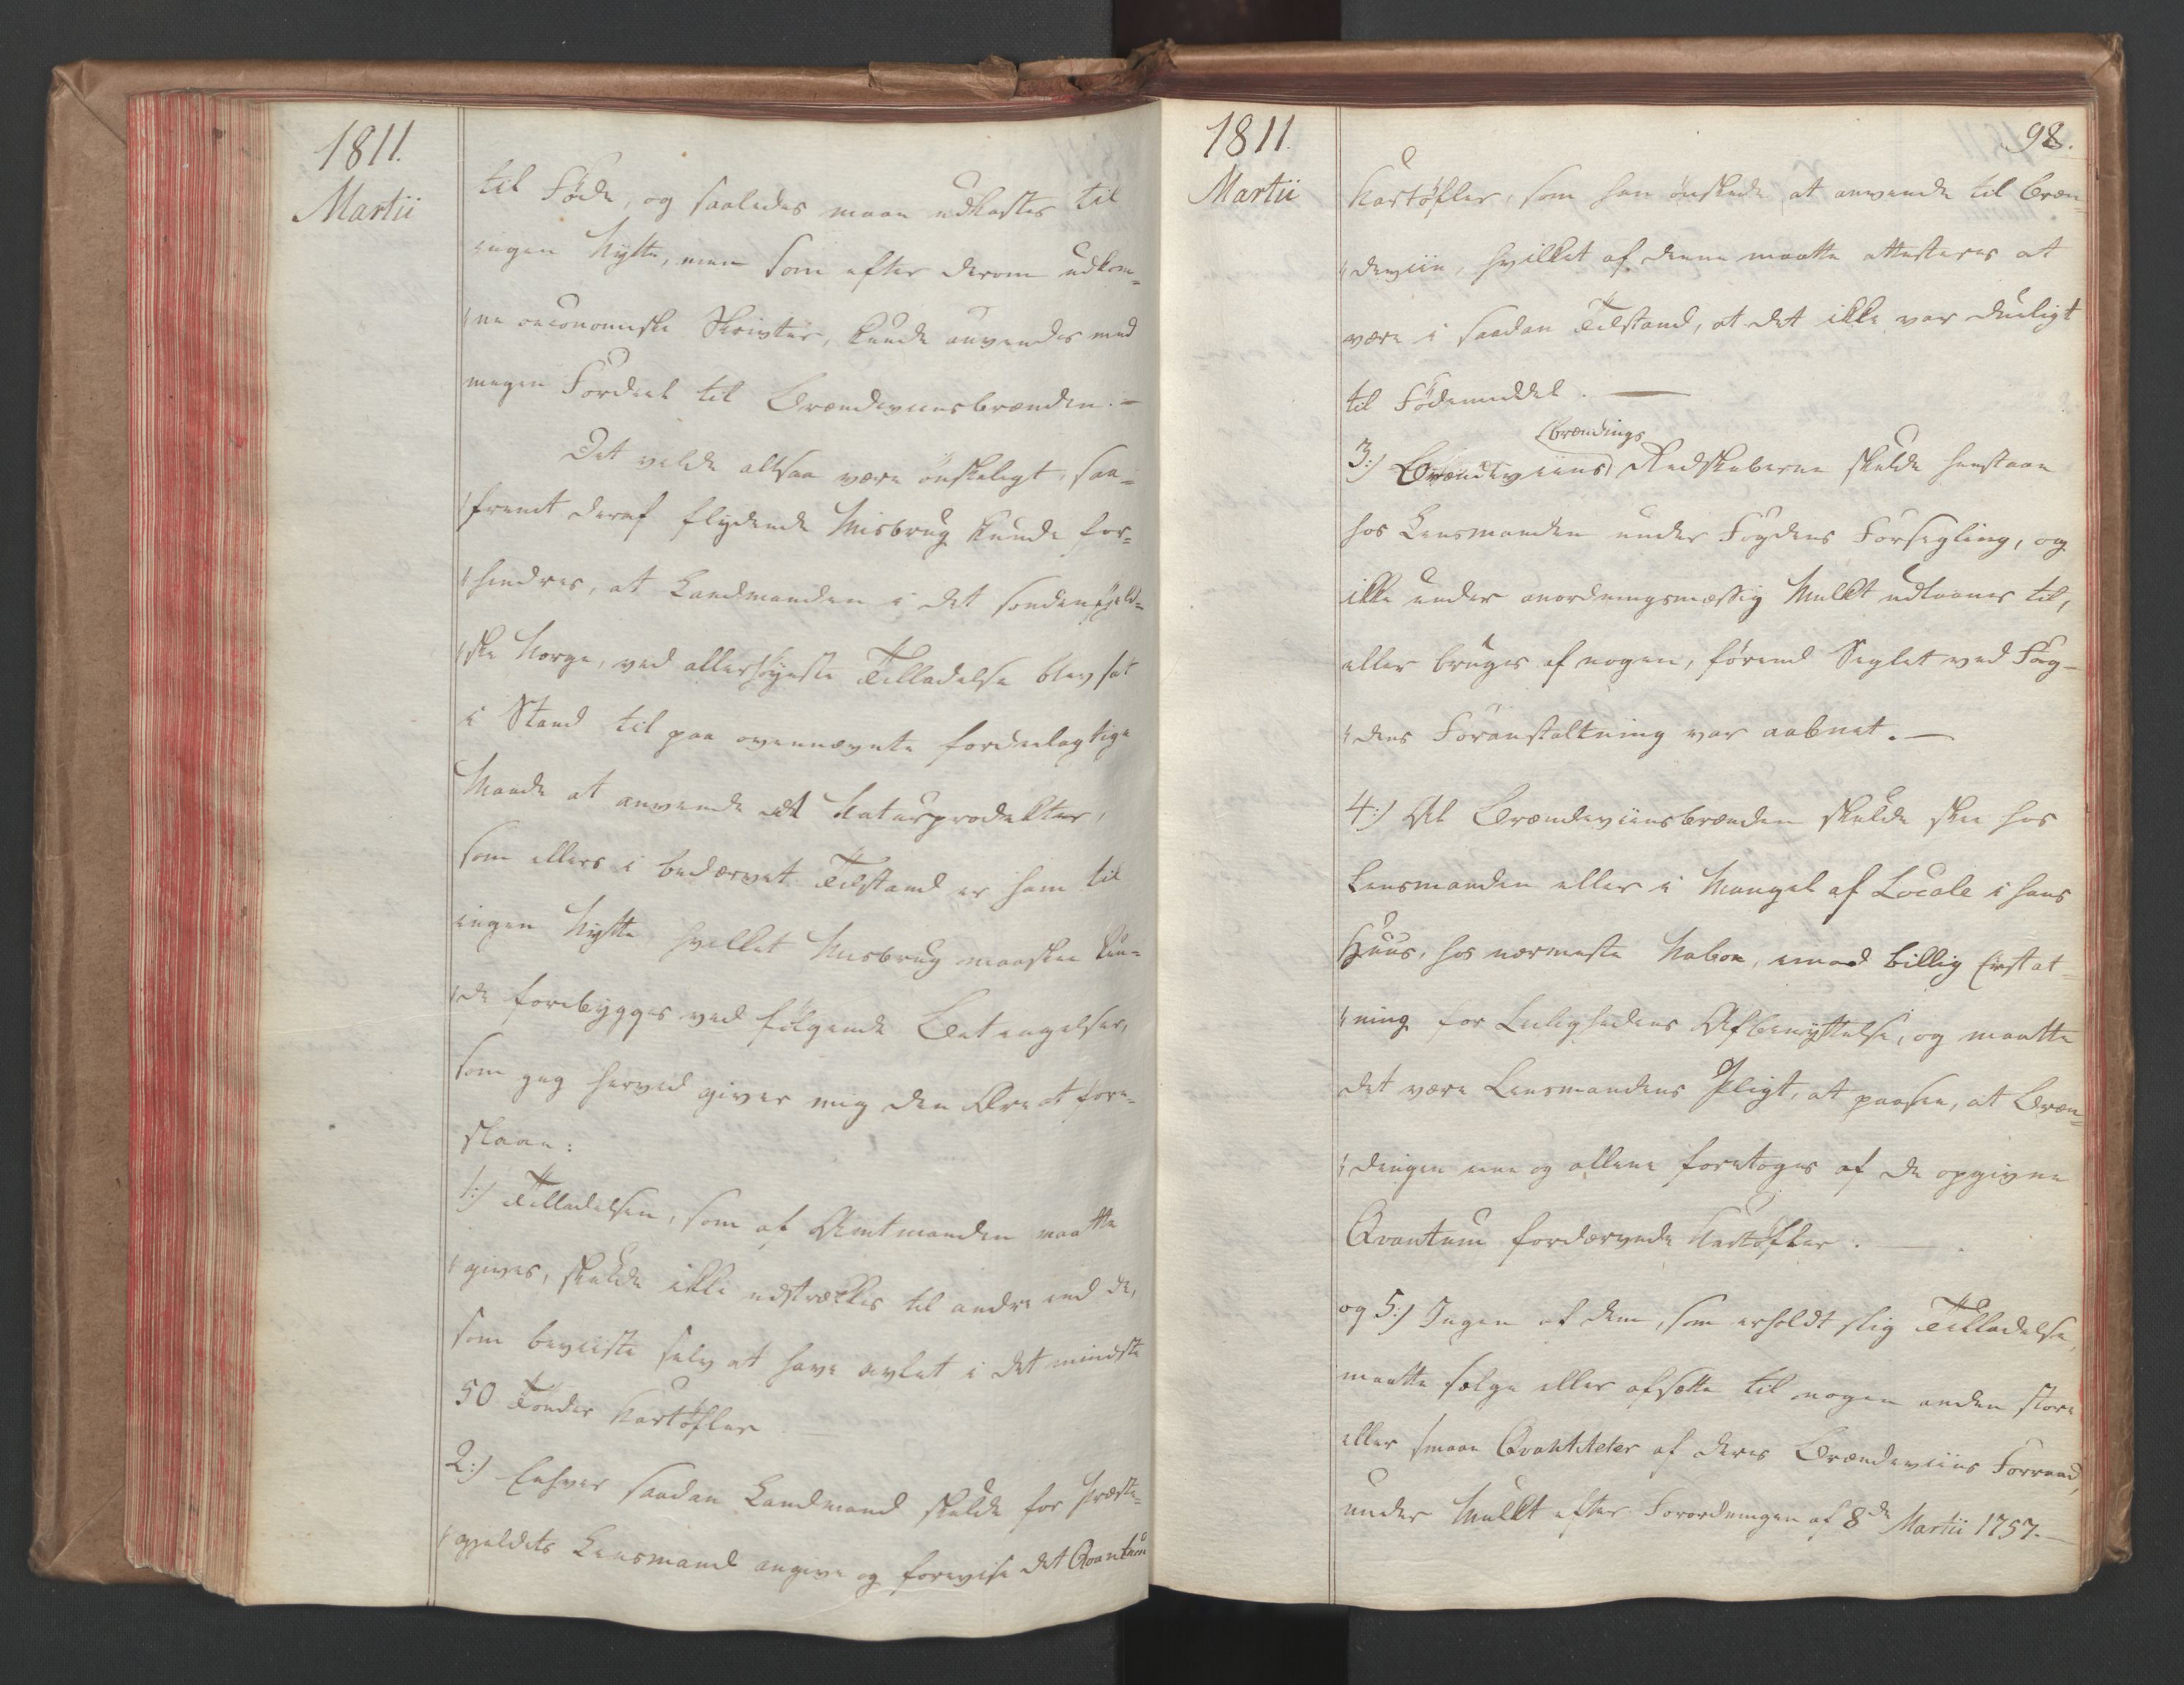 1811.
Martii
til Føde, og saaledes maae udkastes til
ingen Nytte, men som efter derom udkom=
ne oeconomiske Skrivter, kunde anvendes med
megen Fordeel til Brændeviinsbrænden. —
Det vilde altsaa være ønskeligt, saa=
fremt deraf flydende Misbrug kunde for=
hindres, at Landmanden i det søndenfjeld=
ske Norge, ved allerhøyeste Tilladelse blev sat
i Stand til paa ovennævnte fordeelagtige
Maade at anvende et Naturprodukter,
som ellers i bedærvet Tilstand er ham til
ingen Nytte, hvilket Misbrug maaskee kun=
de forebygges ved følgende Betingelser,
som jeg herved giver mig den Ære at fore=
slaae:
1:) Tilladelsen, som af Amtmanden maatte
gives, skulde ikke udstrækkes til andre end de,
som beviiste selv at have avlet i det mindste
50 Tønder Kartøfler
2:) Enhver saadan Landmand skulde for Præste=
gjeldets Lensmand angive og forevise det Qvantum
1811.
Martii
98.
Kartøfler, som han ønskede at anvende til Bræn=
deviin, hvilket af denne maatte attesteres at
være i saadan Tilstand, at det ikke var dueligt
til Fødemiddel. —
brændings
3:) Brændeviins Redskaberne skulde henstaae
hos Lensmanden under Fogdens Forsegling, og
ikke under anordningsmæssig Mulkt udlaanes til,
eller bruges af nogen, førend Seglet ved Fog=
dens Foranstaltning var aabnet. —
4:) Al Brændeviinsbrænden skulde skee hos
Lensmanden eller i Mangel af Locale i hans
Huus, hos nærmeste Naboe, imod billig Erstat=
ning for Leilighedens Afbenyttelse, og maatte
det være Lensmandens Pligt, at paasee, at Bræn=
dingen ene og allene foretoges af de opgivne
Qvantum fordærvede Kartøfler. —
og 5:) Ingen af dem, som erholdt slig Tilladelse,
maatte sælge eller afsætte til nogen anden store
eller smaae Qvantiteter af deres Brændeviins Forraad,
under Mulkt efter Forordningen af 8de Martii 1757. —